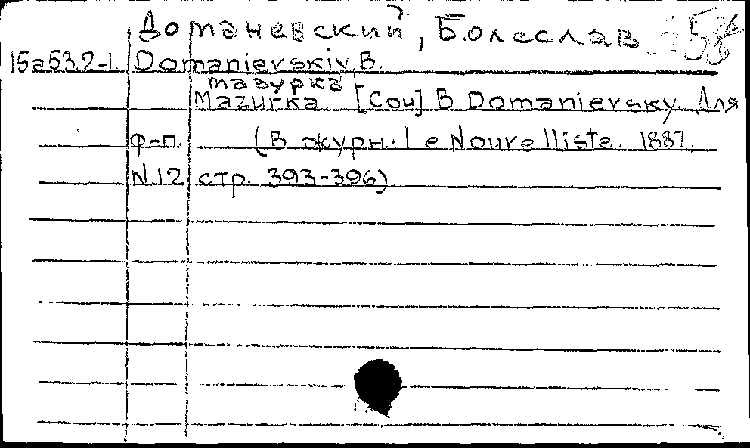 Доманевский, Болеслав
15а532-1. Domanievskiy B.
мазурка
Mazurka [Соч] B Domanievsky Для
ф-п. (В журн. Le Nouvelliste. 1887.
N.12 стр. 393-396)